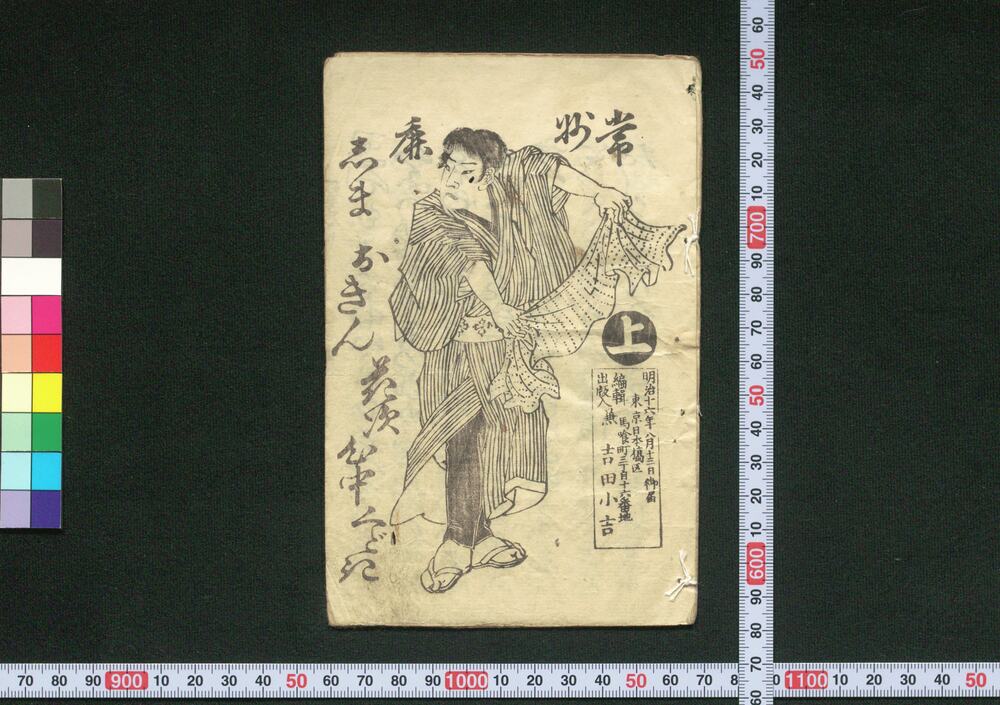 常州
庵
志ま
おきん
心中くどき
上
明治十六年八月十三日御届
東京日本橋区
馬喰町三丁目十六番地
編輯
出版人
兼
吉田小吉
60
50
40
30
20
10
700
90
80
70
60
50
40
30
20
10
600
90
80
70
60
70
80
90
900
10
20
30
40
50
60
70
80
90
1000
10
20
30
40
50
60
70
80
0
1100
10
20
30
40
50